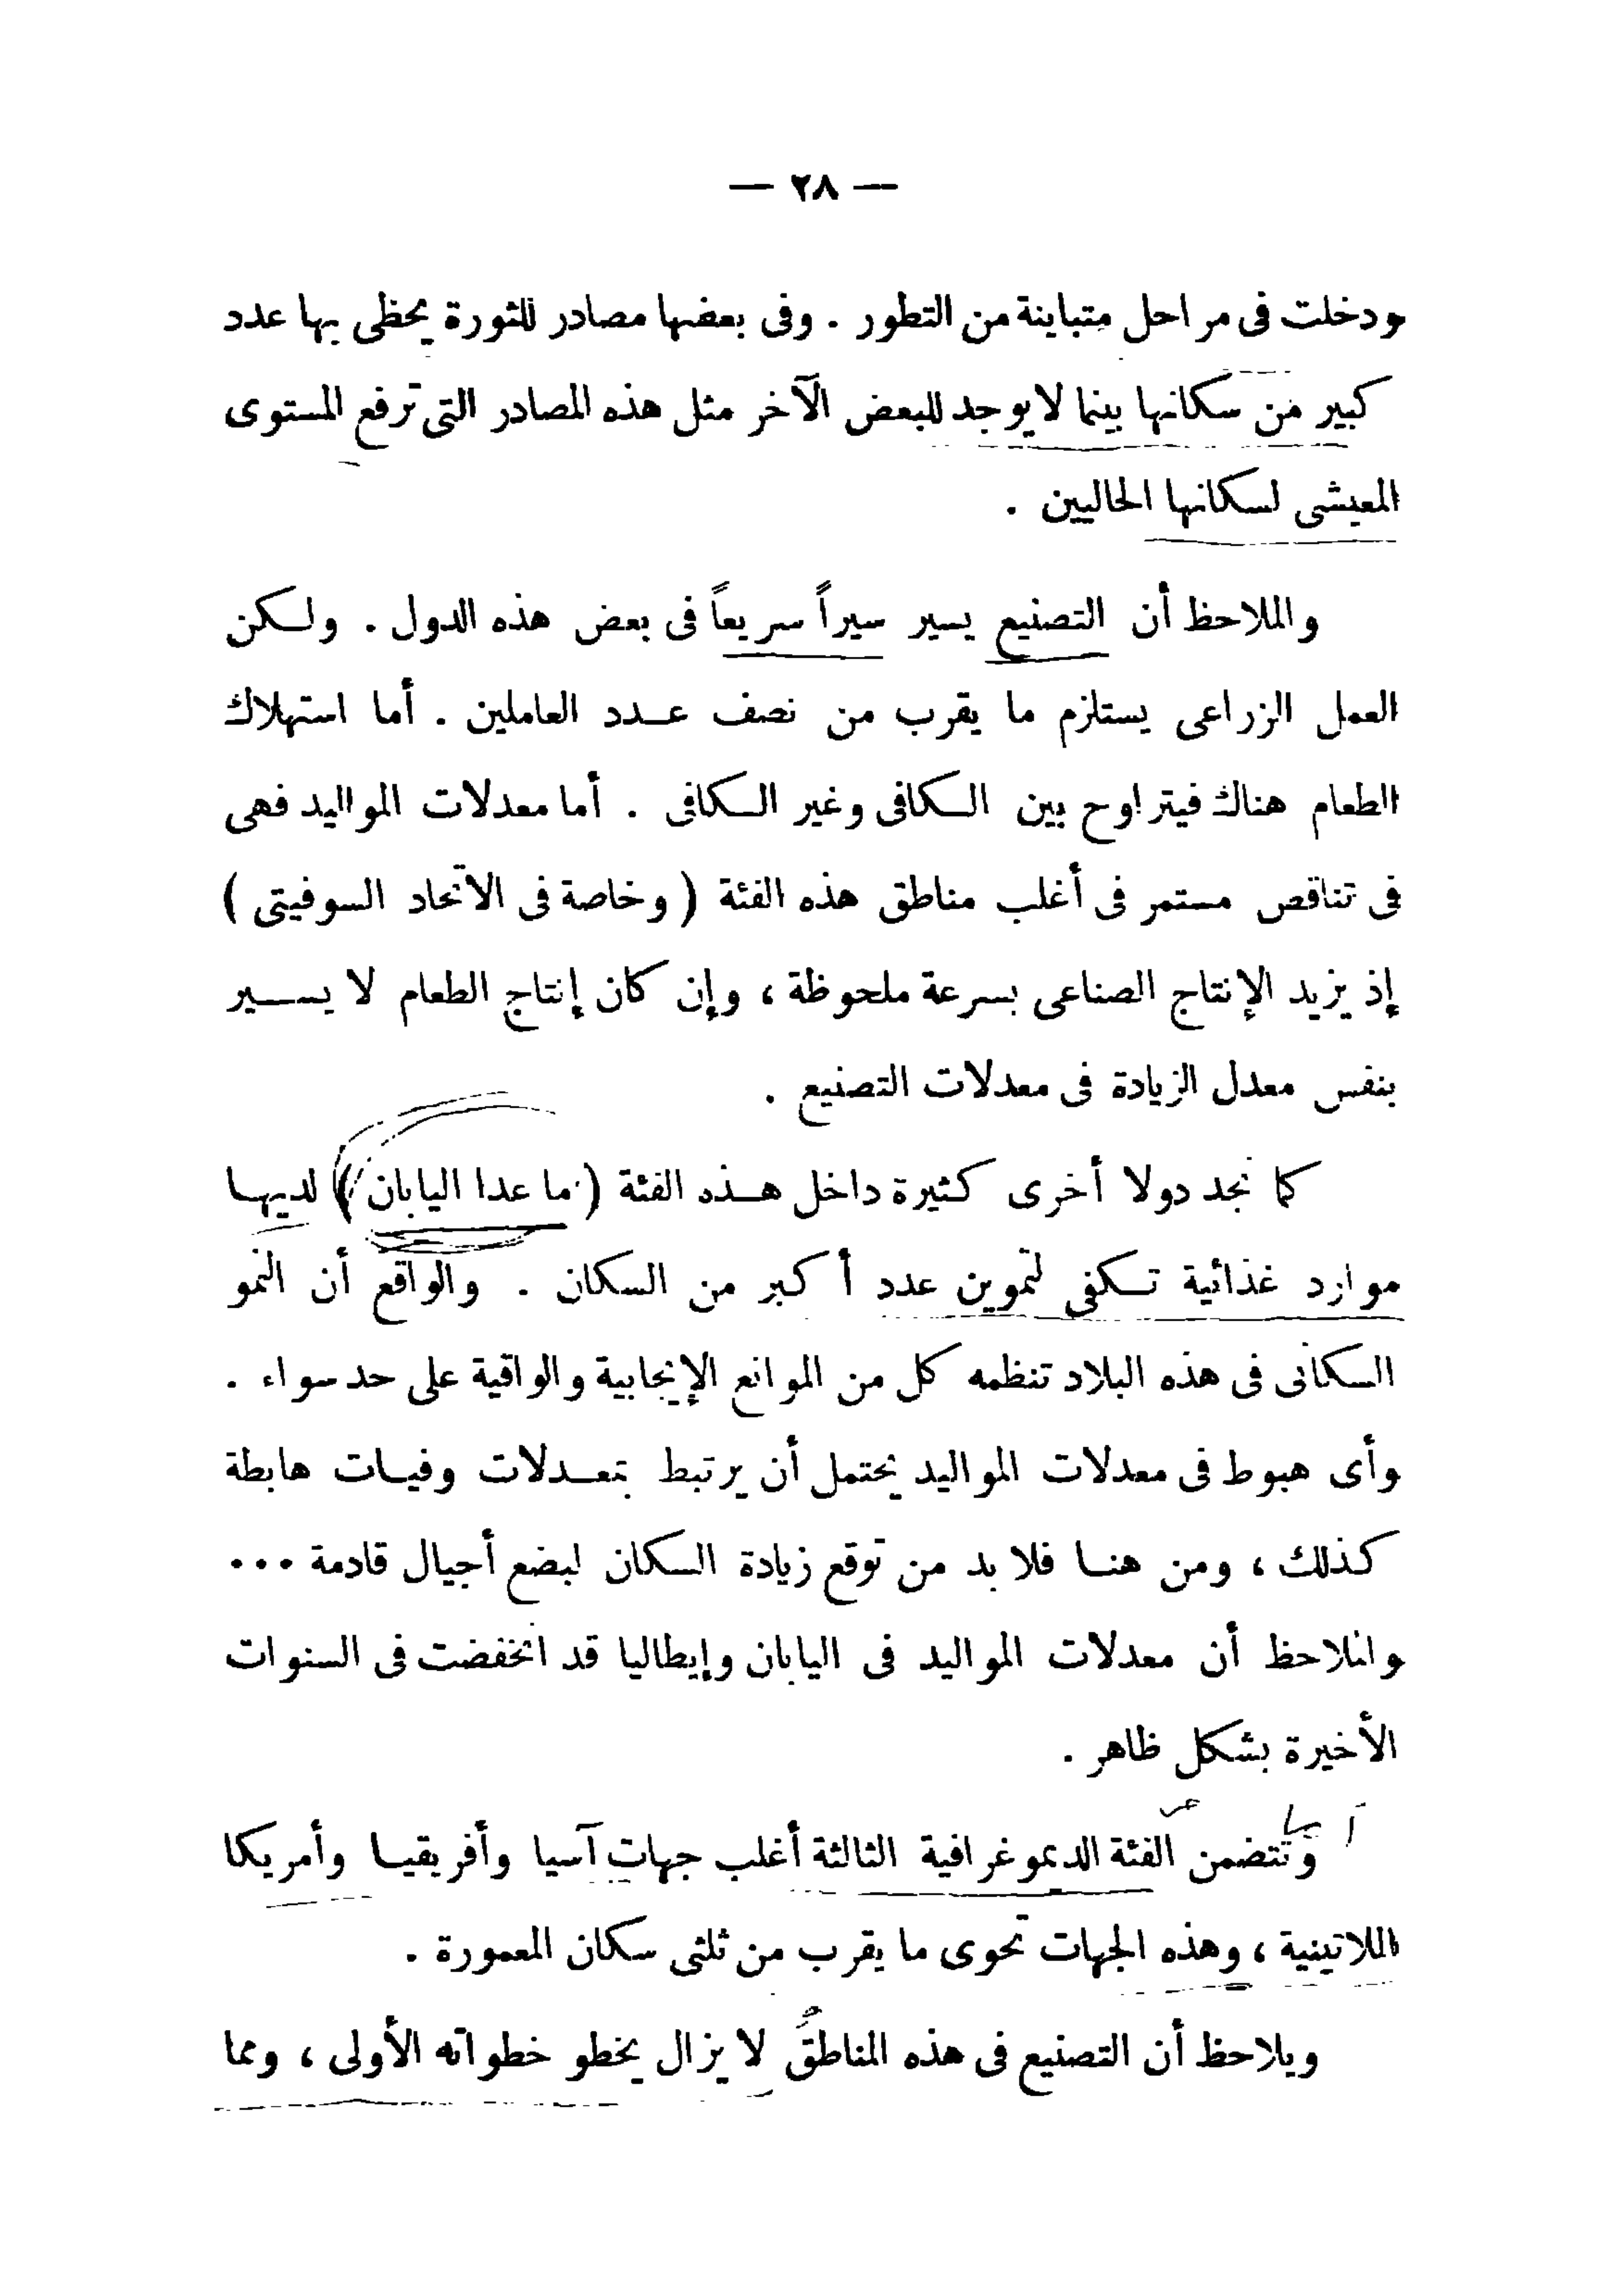 — ٢٨ —
ودخلت فى مراحل متباينة من التطور . وفى بعضها مصادر للثورة يحظى بها عدد
كبير من سكانها بينما لا يوجد للبعض الآخر مثل هذه المصادر التى ترفع المستوى
المعيشى لسكانها الحاليين .
والملاحظ أن التصنيع يسير سيراً سريعاً فى بعض هذه الدول . ولكن
العمل الزراعى يستلزم ما يقرب من نصف عدد العاملين . أما استهلاك
الطعام هناك فيتراوح بين الكافى وغير الكافى . أما معدلات المواليد فهى
فى تناقص مستمر فى أغلب مناطق هذه الفئة ( وخاصة فى الاتحاد السوفيتى )
إذ يزيد الإنتاج الصناعى بسرعة ملحوظة ، وإن كان إنتاج الطعام لا يسير
بنفس معدل الزيادة فى معدلات التصنيع .
كما نجد دولا أخرى كثيرة داخل هذه الفئة ( ما عدا اليابان ) لديها
موارد غذائية تكفى لتموين عدد أكبر من السكان . والواقع أن النمو
السكانى فى هذه البلاد تنظمه كل من الموانع الإيجابية والواقية على حد سواء .
وأى هبوط فى معدلات المواليد يحتمل أن يرتبط بمعدلات وفيات هابطة
كذلك ، ومن هنا فلا بد من توقع زيادة السكان لبضع أجيال قادمة ...
والملاحظ أن معدلات المواليد فى اليابان وإيطاليا قد انخفضت فى السنوات
الأخيرة بشكل ظاهر .
وتتضمن الفئة الديموغرافية الثالثة أغلب جهات آسيا وأفريقيا وأمريكا
اللاتينية ، وهذه الجهات تحوى ما يقرب من ثلثى سكان المعمورة .
ويلاحظ أن التصنيع فى هذه المناطق لا يزال يخطو خطواته الأولى ، ومما